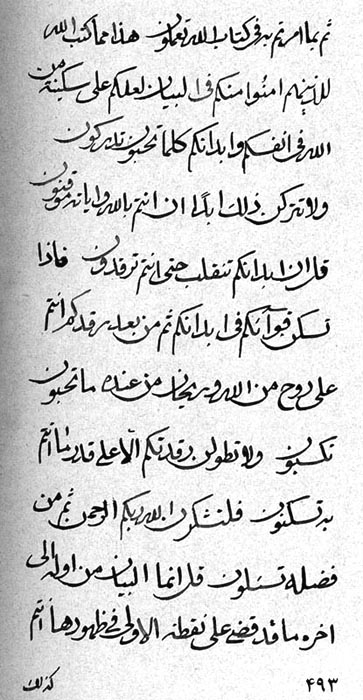 ثم بما امرتم به فی کتاب الله تعملون هذا مما کتب الله
للذینهم امنوا منکم فی البیان لعلکم علی سکینة من
الله فی انفسکم وابدانکم کلما تحبون تدرکون
ولا تترکن ذلك ابدا ان انتم بالله وایاته موقنون
قل ان ابدانکم تنقلب حتی انتم ترقدون فاذا
تسکن قواتکم فی ابدانکم ثم من بعد رقدکم انتم
علی روح من الله وریحان من عنده ما تحبون
تکسبون ولا تطولن رقدتکم الا علی قدر ما انتم
به تسکنون فلتشکرن الله ربکم الرحمن ثم من
فضله تسئلون قل انما البیان من اوله الی
اخره ما قد قضی علی نقطة الاولی فی ظهورها انتم
۴۹۳ کذلك